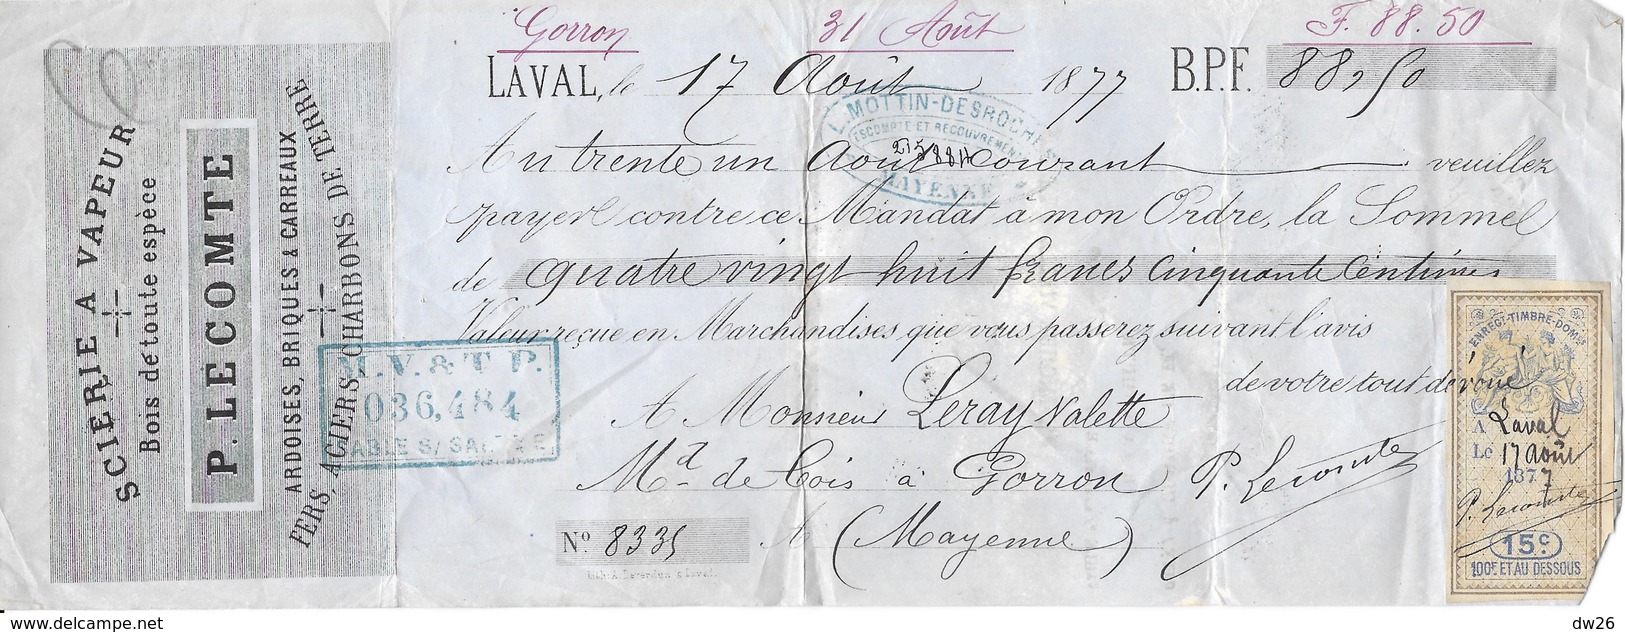 Gorron 31 Août F. 88.50
LAVAL, le 17 Août 1877 B.P.F. 88,50
Au trente un Août courant veuillez
payer contre ce Mandat à mon Ordre, la Somme
de quatre vingt huit francs cinquante centimes
Valeur reçue en Marchandises que vous passerez suivant l'avis
de votre tout dévoué
A Monsieur Leray Valette
Md de Bois à Gorron P. Lecomte
A (Mayenne)
No. 8335
SCIERIE A VAPEUR
Bois de toute espèce
P. LECOMTE
ARDOISES, BRIQUES & CARREAUX
FERS, ACIERS CHARBONS DE TERRE
MOTTIN-DESROCHES
ESCOMPTE ET RECOUVREMENT
MAYENNE
M.V. & T P.
036,484
SABLE S/ SARTHE
ENREGt-TIMBRE-DOMes
A Laval
Le 17 août
1877
P. Lecomte
15c
100F ET AU DESSOUS
dw26